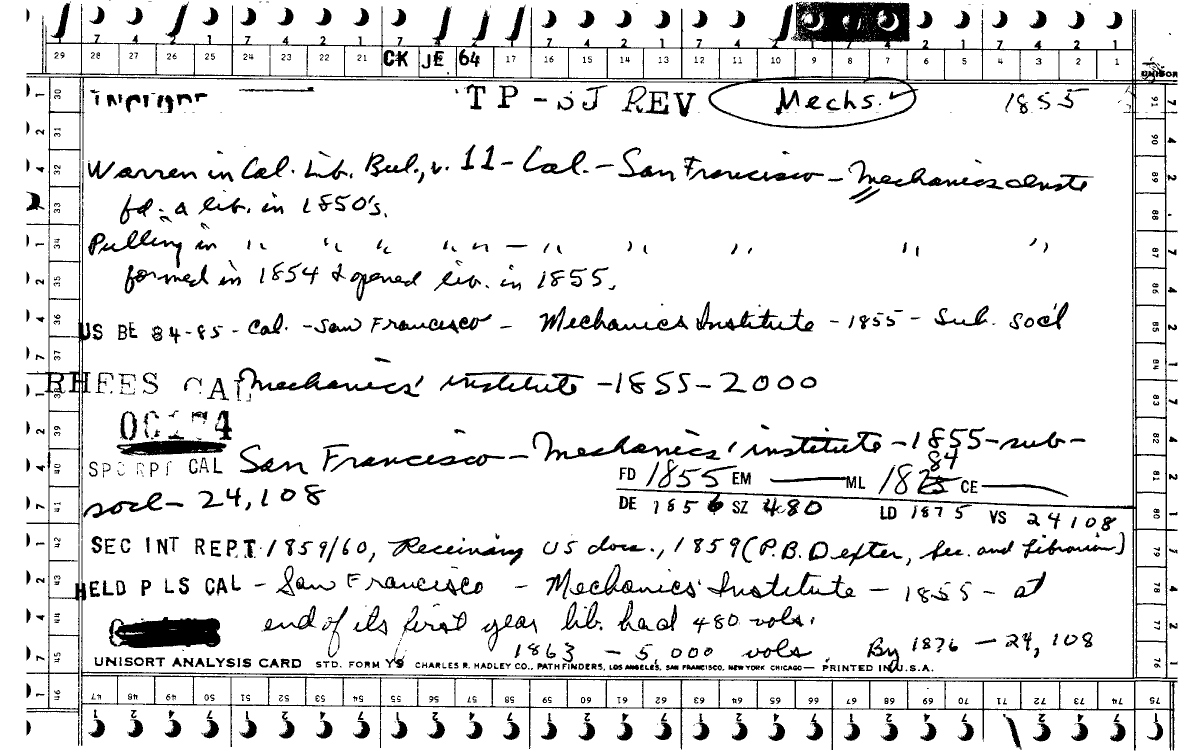 7 4 2 1 7 4 2 1 7 4 2 1 7 4 2 1 7 4 2 1 7 4 2 1
29 28 27 26 25 24 23 22 21 CK JE 64 17 16 15 14 13 12 11 10 9 8 7 6 5 4 3 2 1
UNISOR
TP - SJ REV Mechs. 1855
Warren in Cal. Lib. Bul., v. 11 - Cal. - San Francisco - Mechanics Inste
fd. a lib. in 1850's.
Pulling in " " " " " - " " " " "
formed in 1854 & opened lib. in 1855.
US BE 84-85 - Cal. - San Francisco - Mechanics Institute - 1855 - Sub. soc'l
RHEES CAL Mechanics' institute - 1855 - 2000
SPC RPT CAL San Francisco - Mechanics' institute - 1855 - sub-
socl - 24,108
84
FD 1855 EM — ML 1875 CE —
DE 1856 SZ 480 LD 1875 VS 24108
SEC INT REPT 1859/60, Receiving US docs., 1859 (P.B. Dexter, Sec. and Librarian)
HELD P LS CAL - San Francisco - Mechanics' Institute - 1855 - at
end of its first year lib. had 480 vols.
1863 - 5,000 vols. By 1876 - 24,108
UNISORT ANALYSIS CARD STD. FORM Y9 CHARLES R. HADLEY CO., PATHFINDERS, LOS ANGELES, SAN FRANCISCO, NEW YORK CHICAGO— PRINTED IN U.S.A.
46 47 48 49 50 51 52 53 54 55 56 57 58 59 60 61 62 63 64 65 66 67 68 69 70 71 72 73 74 75